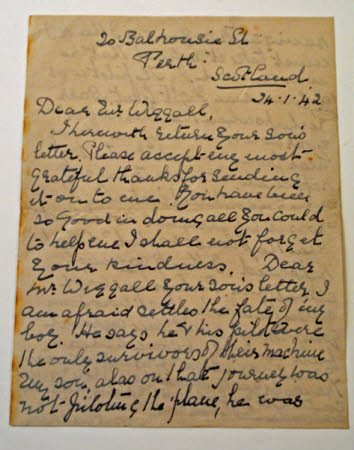 20 Balhousie St
Perth
Scotland
24.1.42
Dear Mr. Wiggall,
I herewith return your son's
letter. Please accept my most
grateful thanks for sending
it on to me. You have been
so good in doing all you could
to help me I shall not forget
your kindness. Dear
Mr. Wiggall your son's letter I
am afraid settles the fate of my
boy. He says he & his pilot were
the only survivors of their machine
my son, also on that journey was
not piloting the plane, he was